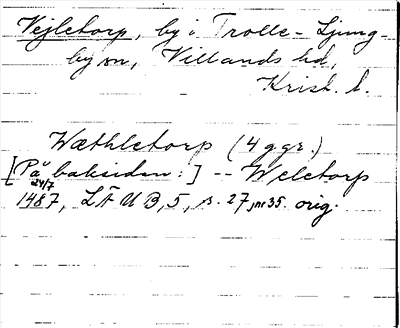 Vejletorp, by i Trolle-Ljung-
by sn, Villands hd,
Krist. l.
Wæthletorp (4 ggr.)
[På baksidan:] -- Weletorp
24/7
1487, LÄUB, 5, s. 27, nr 35. orig.